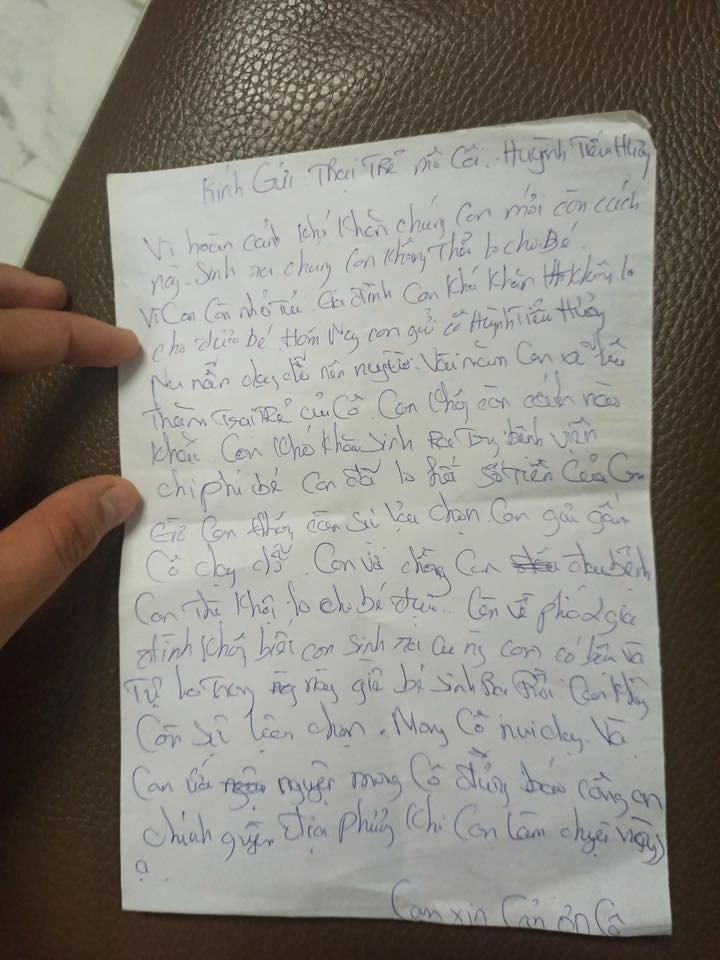 Kính Gửi Trại Trẻ mồ Côi. Huỳnh Tiểu Hương
Vì hoàn cảnh khó khăn chúng con mới còn cách
này. Sinh ra chúng con không thể lo cho Bé.
Vì con còn nhỏ Gia đình con khó khăn không lo
cho được bé Hôm Nay con gửi cô Huỳnh Tiểu Hương
dạy dỗ nên người. Vài năm con sẽ
thăm trại trẻ của Cô. Con không còn cách nào
khác. Con khó khăn sinh bệnh viện
chi phí bé con đã lo hết số tiền của con
Giờ con không còn sự lựa chọn. Con gửi gắm
Cô dạy dỗ. Con và chồng con đau bệnh
Con lo cho bé được. Còn về phía 2 gia
đình không biết con sinh ra con có bầu và
Tự lo giờ bé sinh Ra Rồi Con không
Còn sự chọn. Mong Cô nuôi dạy. Và
Con nguyện mong Cô đừng báo công an
chính quyền địa phương khi con làm chuyện này
ạ
Con xin Cảm ơn Cô